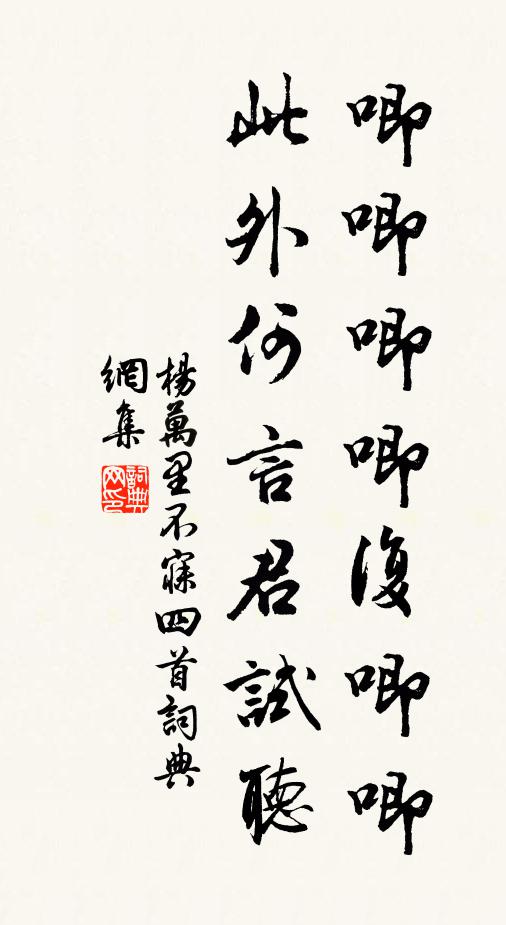 唧唧唧唧復唧唧
此外何言君試聽
楊萬里不寐四首詞典
網集
詞典
网印